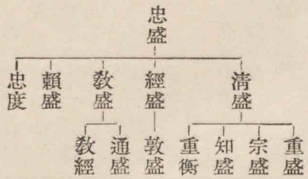 忠盛
清盛
經盛
敎盛
賴盛
忠度
重盛
宗盛
知盛
重衡
敦盛
通盛
敎經